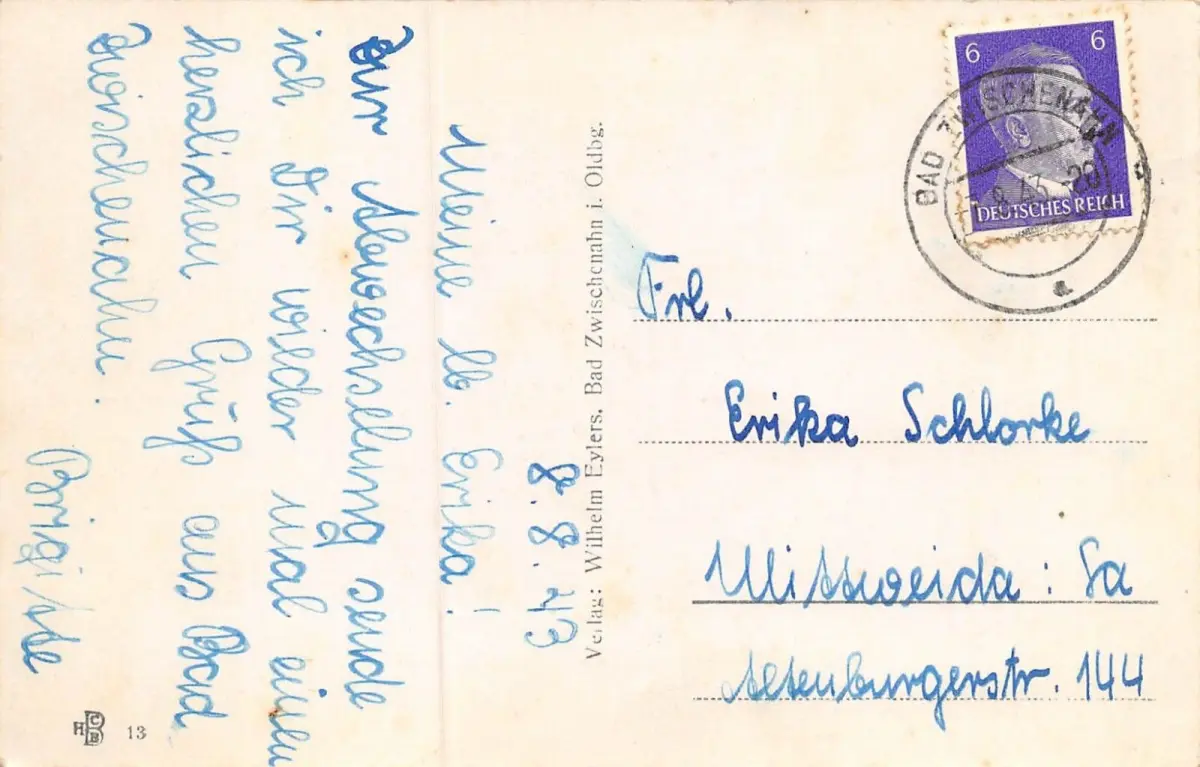 8. 8. 43
Meine lb. Erika!
Zur Abwechselung sende
ich Dir wieder mal einen
herzlichen Gruß aus Bad
Zwischenahn.
Brigitte
Verlag: Wilhelm Eylers, Bad Zwischenahn i. Oldbg.
HCBB 13
6 6
DEUTSCHES REICH
BAD ZWISCHENAHN
8.43.-20
a
Frl.
Erika Schlorke
Mittweida: Sa
Altenburgerstr. 144